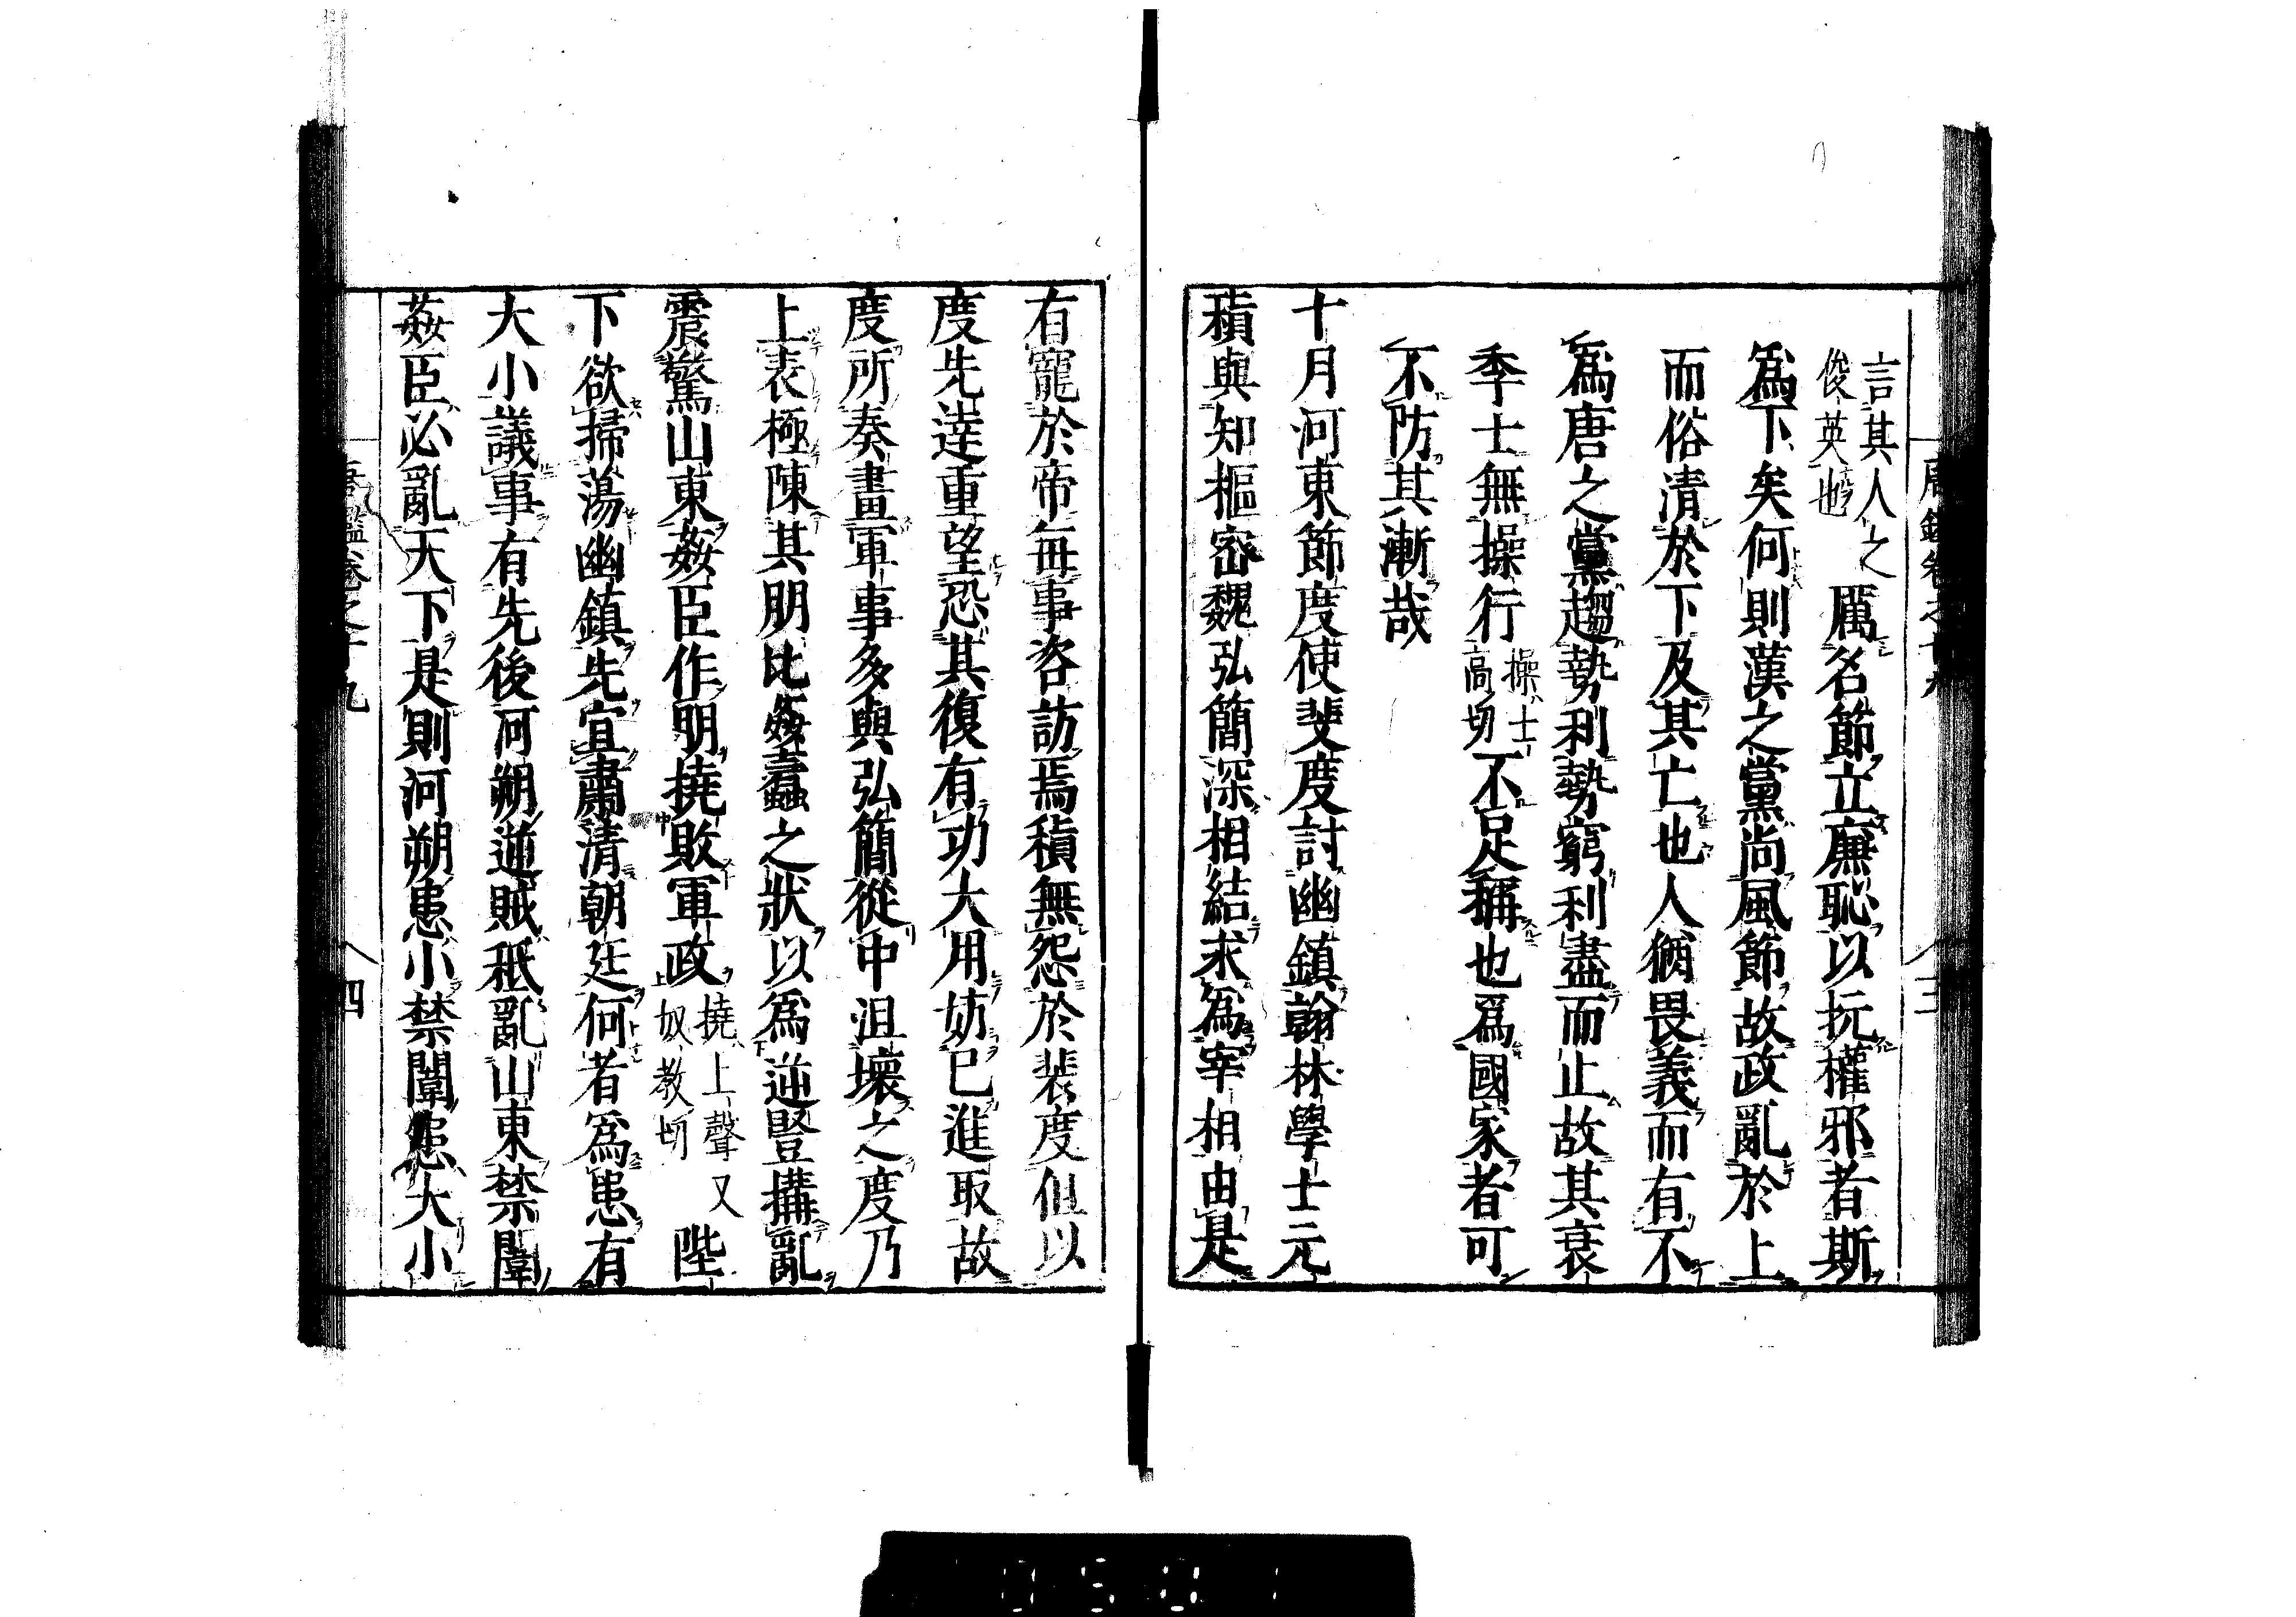 言其人之
俊英也
厲名節立廉恥以抗權邪者斯
爲下矣何則漢之黨尚風節故政亂於上
而俗清於下及其亡也人猶畏義而有不
爲唐之黨趨勢利勢窮利盡而止故其衰
季士無操行
操士
高切
不足稱也爲國家者可
不防其漸哉
十月河東節度使裴度討幽鎮翰林學士元
稹與知樞密魏弘簡深相結求爲宰相由是
有寵於帝每事咨訪焉稹無怨於裴度但以
度先達重望恐其復有功大用妨已進取故
度所奏畫軍事多與弘簡從中沮壞之度乃
上表極陳其朋比姦蠹之狀以爲逆豎搆亂
震驚山東姦臣作朋撓敗軍政
撓上聲又
奴教切
陛
下欲掃蕩幽鎮先宜肅清朝廷何者爲患有
大小議事有先後河朔逆賊秖亂山東禁闈
姦臣必亂天下是則河朔患小禁闈患大小
唐鑑卷之十九
四